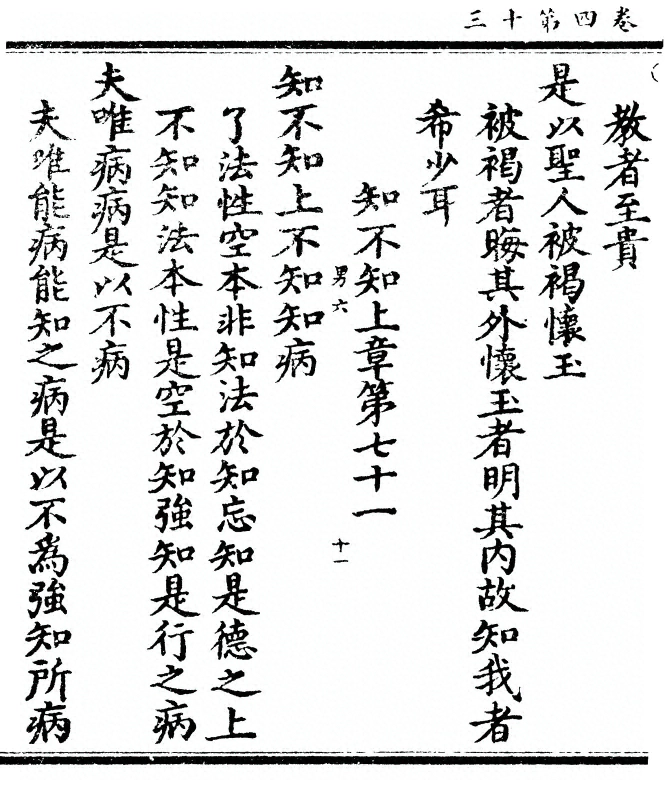 卷四第十三
教者至貴
是以聖人被褐懷玉
被褐者晦其外懷玉者明其內故知我者
希少耳
知不知上章第七十一
男六
十一
知不知上不知知病
了法性空本非知法於知忘知是德之上
不知知法本性是空於知強知是行之病
夫唯病病是以不病
夫唯能病能知之病是以不為強知所病